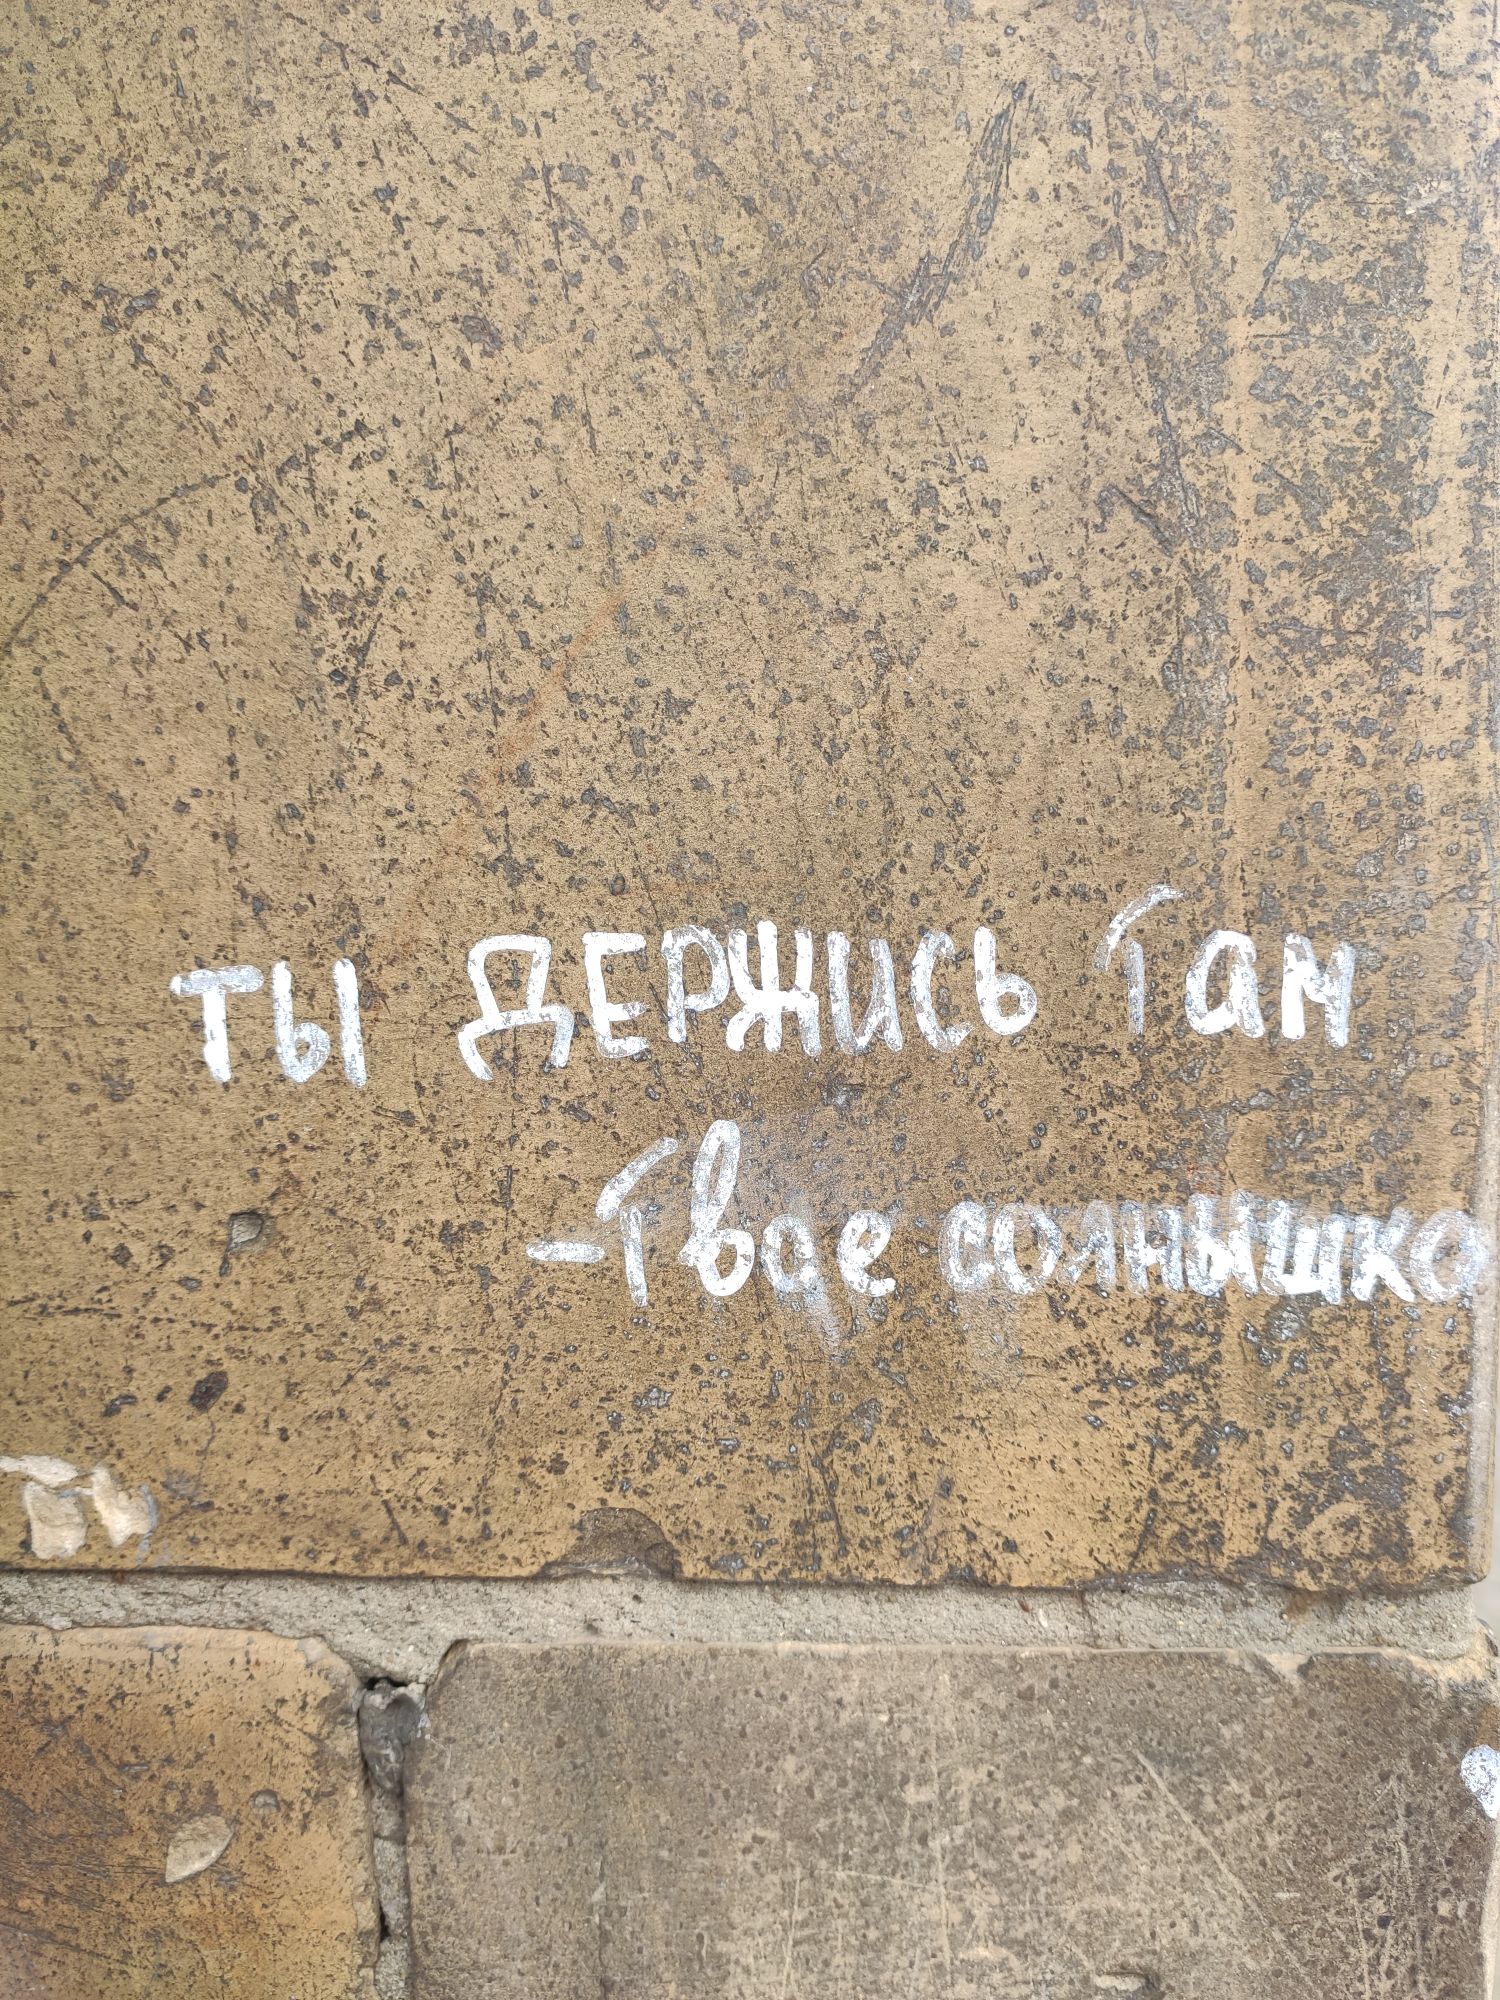 ты держись там
-твое солнышко